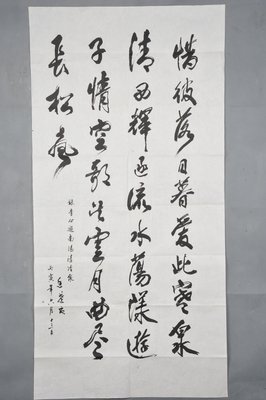 惜彼落日暮愛此寒泉
清西輝逐流水蕩漾遊
子情空歌望雲月曲盡
長松聲
錄李白遊南陽清泠泉
丙寅年六月十三日